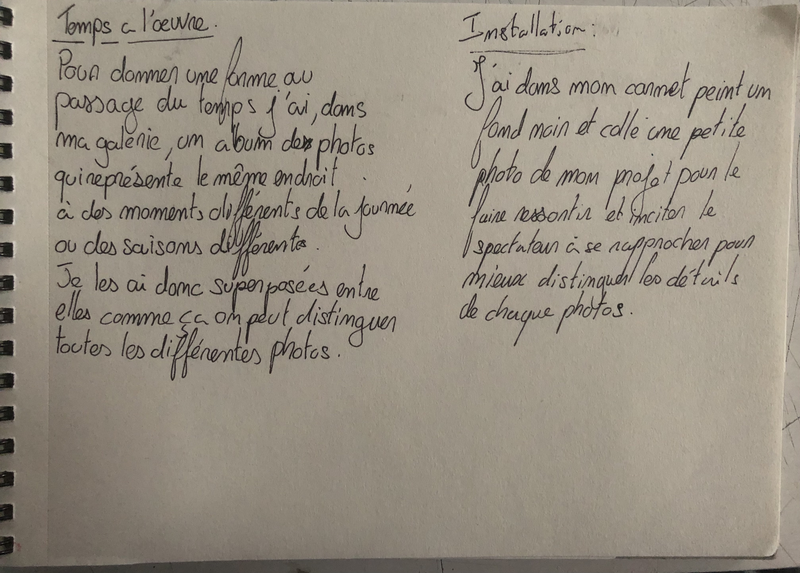 Temps a l'œuvre.
Pour donner une forme au
passage du temps j'ai, dans
ma galerie, un album de photos
qui représente le même endroit
à des moments différents de la journée
ou des saisons différents.
Je les ai donc superposées entre
elles comme ça on peut distinguer
toutes les différentes photos.
Installation :
J'ai dans mon carnet peint un
fond noir et collé une petite
photo de mon projet pour le
faire ressortir et inciter le
spectateur à se rapprocher pour
mieux distinguer les détails
de chaque photos.